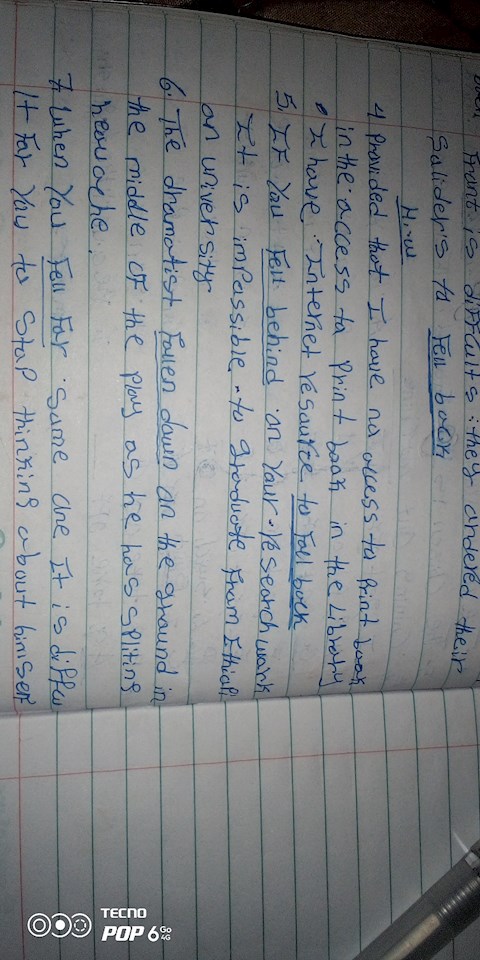 Front is difficults: they ordered their
Salider's to Fell back
H.w
4 Provided that I have no access to Print book
in the access to Print book in the Library
I have Internet resource to Fall back
5. If You Fell behind on Your research work
It is impassible to graduate From Ethiopi
an university
6. The dramatist Fallen down on the ground in
the middle of the play as he has spliting
heavache.
7. When You Fell For Some one It is diffcu
It For You to Stop thinking about himself
TECNO
POP 6 Go
4G